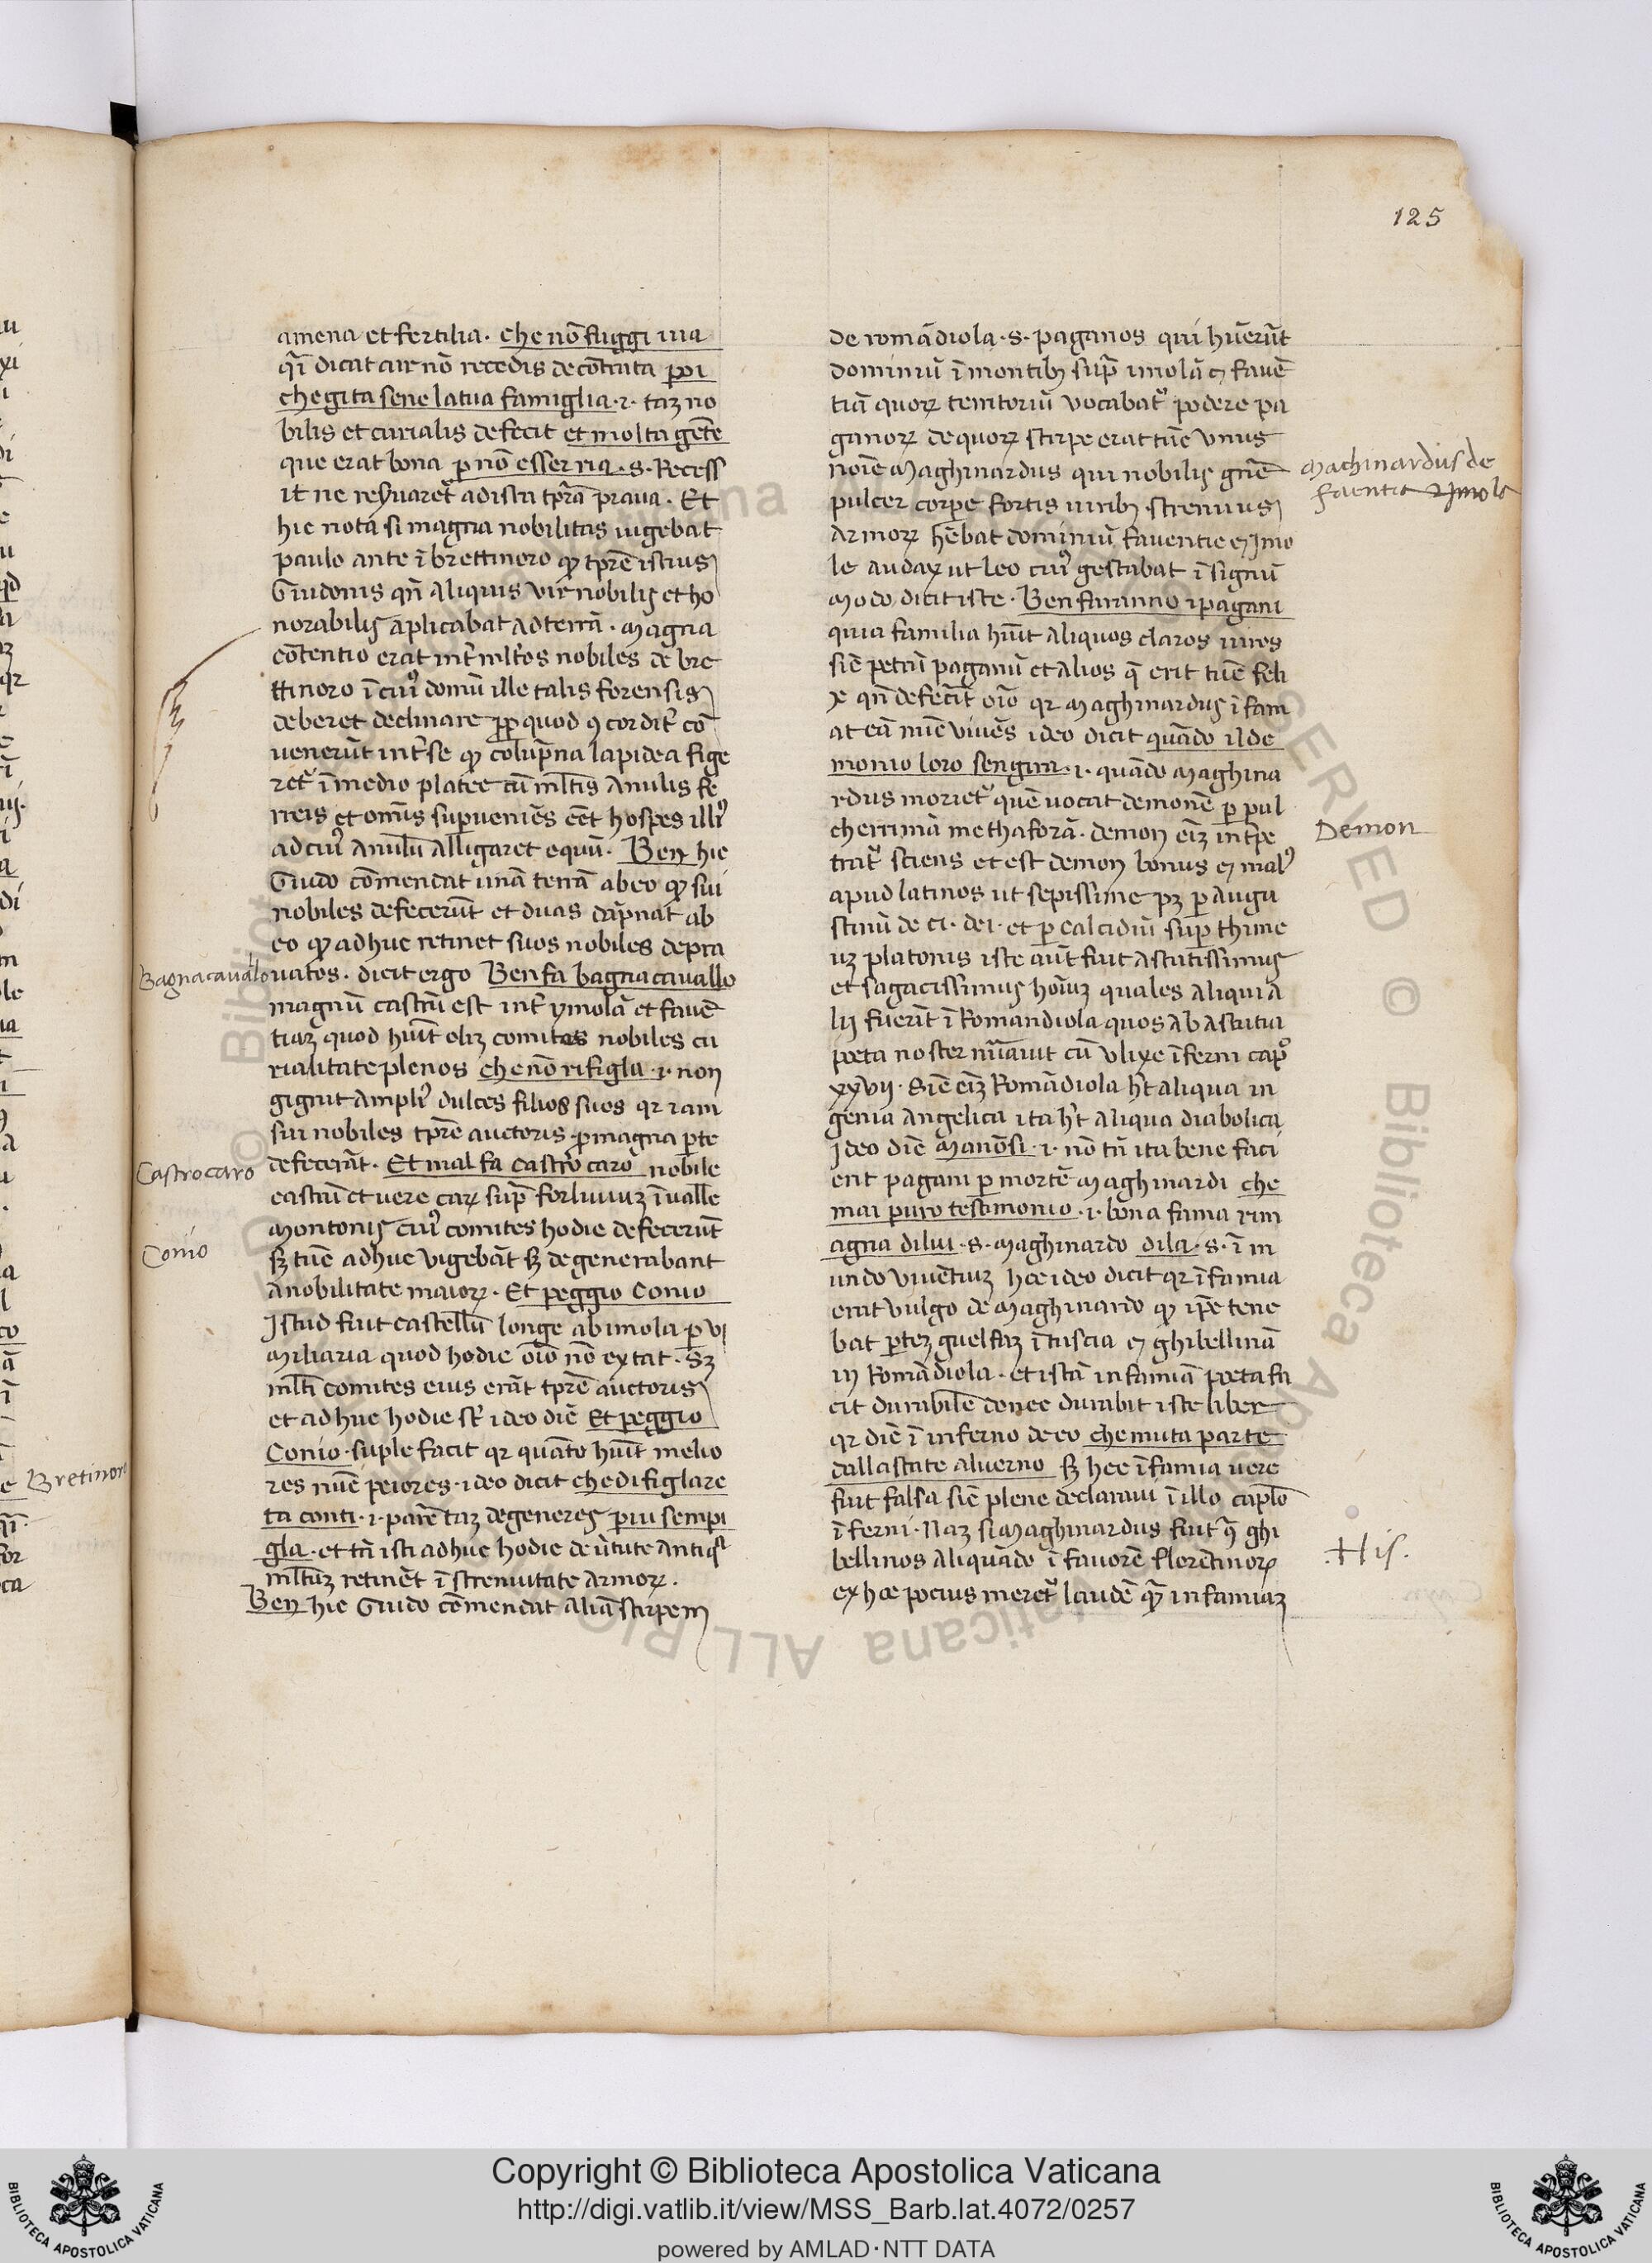 125
amena et fertilia. che nō fuggi uia
qi dicat cur nō recedis de cōtrata poi
che gita sene la tua famiglia .i. taʒ no
bilis et curialis defecit et molta gēte
que erat bona p nō esser ria .s. recess
it ne reseruaretˀ a dista tprā praua. Et
hic nota si magna nobilitas uigebat
paulo ante ī brettinoro qp tpre istius
Guidonis qn aliquis vir nobilis et ho
norabilis aplicabat ad terrā. magna
cōtentio erat inť mltos nobiles de bre
ttinoro ī cuiˀ domū ille talis forensis
deberet declinare ppquod ꝯcorditˀ cō
uenerūt intˀ se qp colupna lapidea fige
retˀ ī medio platee cū mltis anulis fe
rreis et omīs supueniēs eet hospes illiˀ
ad cuiˀ anulū alligaret equū. Ben hic
Guido cōmendat unā terrā ab eo qp sui
nobiles defecerūt et duas dāpnat ab
eo qp adhuc retinet suos nobiles depra
Bagnacauallo
uatos. dicit ergo Ben fa bagna cauallo
magnū castrū est intˀ ymolā et fauē
tiaʒ quod hūit oliʒ comites nobiles cu
rialitate plenos che nō rifigla .i. non
gignit ampliˀ dulces filios suos qr iam
sui nobiles tpre auctoris p magna pte
Castrocaro
defecerāt. Et mal fa castro caro nobile
castrū et uere carꝝ supˀ forliuiuʒ ī ualle
montonis cuiˀ comites hodie defecerūt
Conio
sʒ tūc adhuc vigebāt sʒ degenerabant
a nobilitate maioꝝ. Et peggio Conio
Istud fuit castellū longe ab imola p vi
miliaria quod hodie oīo nō extat. Sʒ
mlti comites eius erāt tpre auctoris
et adhuc hodie st ideo dic Et peggio
Conio. suple facit qr quāto hūit melio
res nūc peiores. ideo dicit che di figlare
Bretinoro
ta conti .i. parētaʒ degeneres piu sempi
gla. et tn isti adhuc hodie de ūtute antiqa
mltuʒ retinēt ī strenuitate armoꝝ.
Ben hic Guido cōmendat aliā stirpem
de romādiola .s. paganos qui hūerūt
dominiū ī montibʒ supˀ imolā ⁊ fauē
tiā quoꝝ territoriū vocabatˀ podere pa
ganoꝝ de quoꝝ stirpe erat tūc vnus
noīe maghinardus qui nobilis gnē
machinardus de
fauentia ⁊ Imola
pulcer corpe fortis uiribʒ strenuus
armoꝝ hēbat dominiū fauentie ⁊ Imo
le audax ut leo cuiˀ gestabat ī signū
modo dicit iste. Ben faranno i pagani
quia familia hūit aliquos claros uiros
sic petrū paganū et alios q erit tūc feli
x qn defecit oīo qr maghinardus ī fam
at eā nūc viuēs ideo dicit quādo il de
monio loro sen gira .i. quādo maghina
rdus morietˀ quē uocat demonē p pul
Demon
cherrimā methaforā. demon eiʒ intpe
tratˀ sciens et est demon bonus ⁊ malˀ
apud latinos ut sepissime pʒ p augu
stinū de ci. dei. et p calcidiū supˀ thime
uʒ platonis iste aūt fuit astutissimus
et sagacissimus hoīuʒ quales aliqui a
lij fuerūt ī Romandiola quos ab astutia
poeta noster nūauit cū vlixe īferni capo
xxvij. Sic eiʒ Romādiola ht aliqua in
genia angelica ita ht aliqua diabolica
Ideo dic ma nōsi .i. nō tn ita bene faci
ent pagani p mortē maghinardi che
mai puro testimonio .i. bona fama rim
agna di lui .s. maghinardo di la .s. ī m
undo viuentiuʒ hoc ideo dicit qr ī famia
erat vulgo de maghinardo qp ipe tene
bat pteʒ guelfaʒ ī tuscia ⁊ ghibellinā
in Romādiola. et istā infamiā poeta fa
cit durabilē donec durabit iste liber
qr dic ī inferno de eo che muta parte
dalla state al uerno sʒ hec ī famia uere
fuit falsa sic plene declaraui ī illo caplo
ī ferni. Naʒ si maghinardus fuit ꝯ ghi
His.
bellinos aliquādo ī fauorē florētinoꝝ
ex hoc pocius meretˀ laudē qʒ infamiaʒ
Copyright © Biblioteca Apostolica Vaticana
http://digi.vatlib.it/view/MSS_Barb.lat.4072/0257
powered by AMLAD·NTT DATA
BIBLIOTECA APOSTOLICA VATICANA
BIBLIOTECA APOSTOLICA VATICANA